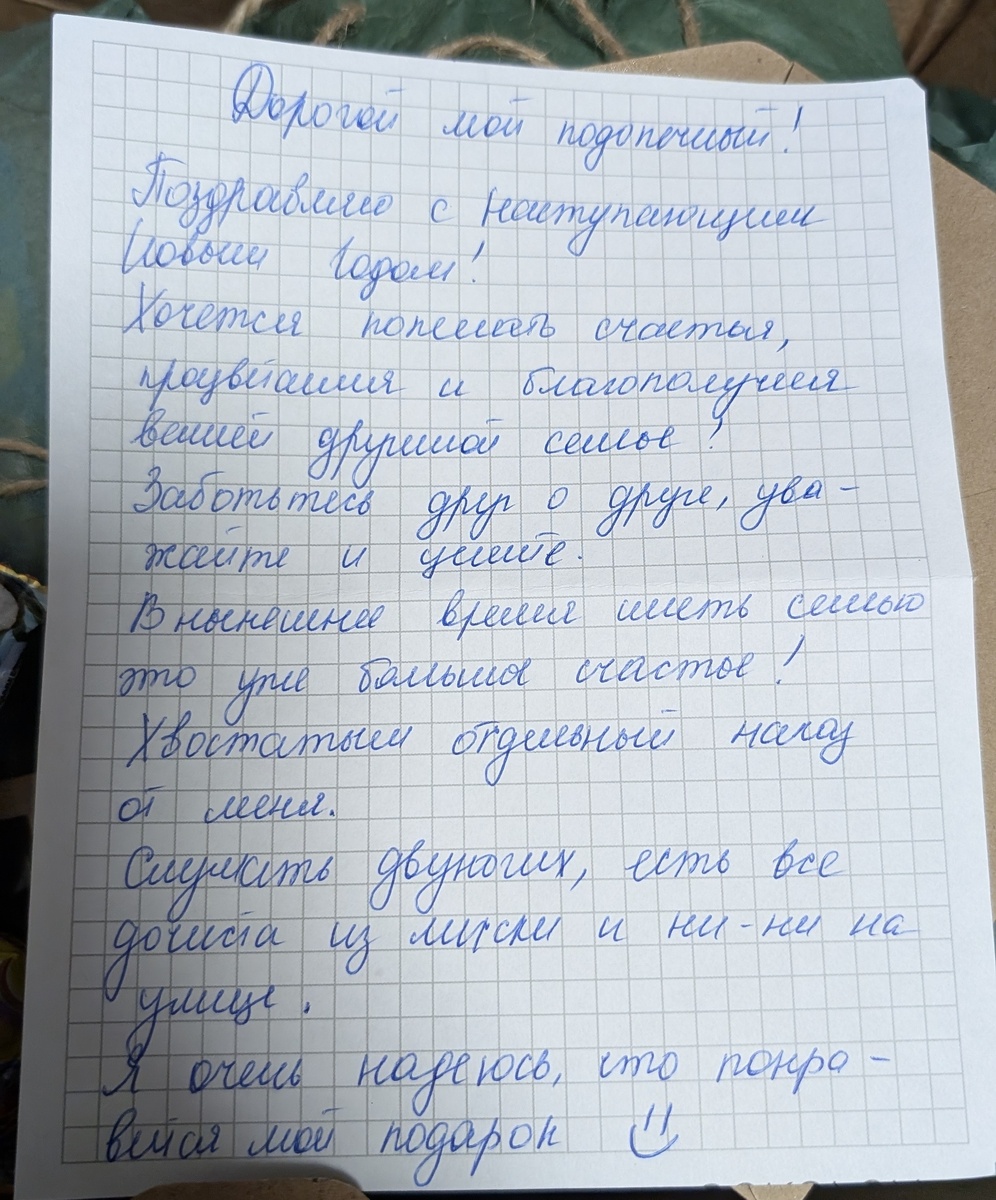 Дорогой мой подопечный!
Поздравляю с наступающим
Новым Годом!
Хочется пожелать счастья,
процветания и благополучия
вашей дружной семье!
Заботьтесь друг о друге, ува-
жайте и цените.
В нынешнее время иметь семью
это уже большое счастье!
Хвостатым отдельный наказ
от меня.
Слушать двуногих, есть все
дочиста из миски и ни-ни на
улице.
Я очень надеюсь, что понра-
вится мой подарок